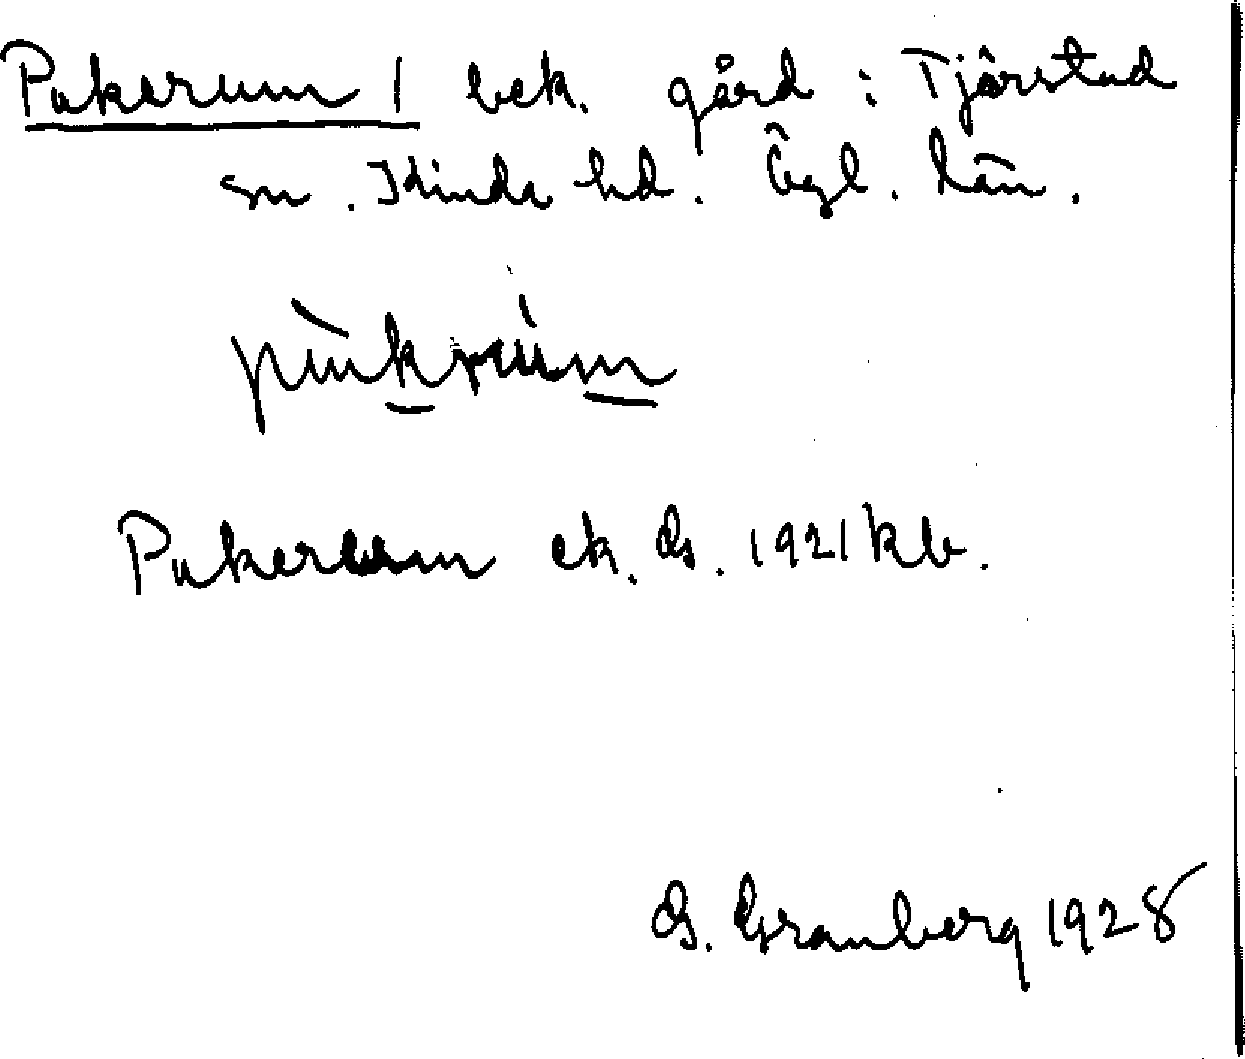 Pukerum 1 bek. gård i Tjärstad
sn. Kinda hd. Ögl. län.
pùkrùm
Pukerum ek. G. 1921 kb.
G. Granberg 1928